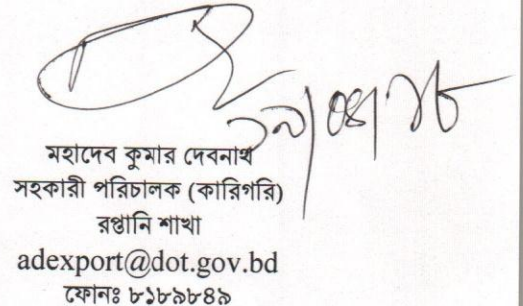 ১৯/০৪/১৮
মহাদেব কুমার দেবনাথ
সহকারী পরিচালক (কারিগরি)
রপ্তানি শাখা
adexport@dot.gov.bd
ফোনঃ ৮১৮৯৮৪৯